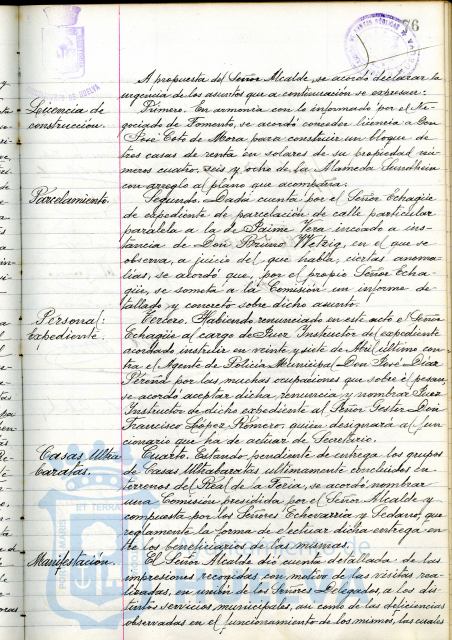 76
A propuesta del Señor Alcalde, se acordó declarar la
urgencia de los asuntos que a continuación se expresan:
Licencia de
construcción.
Primero. En armonía con lo informado por el Ne-
gociado de Fomento, se acordó conceder licencia a Don
José Coto de Mora para construir un bloque de
tres casas de renta en solares de su propiedad nú-
meros cuatro, seis y ocho de la Alameda Sundheim
con arreglo al plano que acompaña.
Parcelamiento.
Segundo. Dada cuenta por el Señor Echagüe
de expediente de parcelación de calle particular
paralela a la de Jaime Vera incoado a ins-
tancia de Don Bruno Wetzig, en el que se
observa, a juicio del que habla, ciertas anoma-
lías, se acordó que, por el propio Señor Echa-
güe, se someta a la Comisión un informe de-
tallado y concreto sobre dicho asunto.
Personal:
Expediente.
Tercero. Habiendo renunciado en este acto el Señor
Echagüe al cargo de Juez Instructor del expediente
acordado instruir en veinte y siete de Abril último con-
tra el Agente de Policía Municipal Don José Díaz
por las muchas ocupaciones que sobre él pesan,
se acordó aceptar dicha renuncia y nombrar Juez
Instructor de dicho expediente al Señor Gestor Don
Francisco López Romero, quien designará al fun-
cionario que ha de actuar de Secretario.
Casas Ultra
baratas.
Cuarto. Estando pendiente de entrega los grupos
de Casas Ultabaratas ultimamente concluidos en
terrenos del Real de la Feria, se acordó nombrar
una Comisión presidida por el Señor Alcalde y
compuesta por los Señores Echevarría y que
reglamente la forma de efectuar dicha entrega en-
tre los beneficiarios de las mismas.
Manifestación.
El Señor Alcalde dió cuenta detallada de las
impresiones recogidas con motivo de las visitas rea-
lizadas, en unión de los Señores Delegados, a los dis-
tintos servicios municipales, así como de las deficiencias
observadas en el funcionamiento de los mismos, las cuales